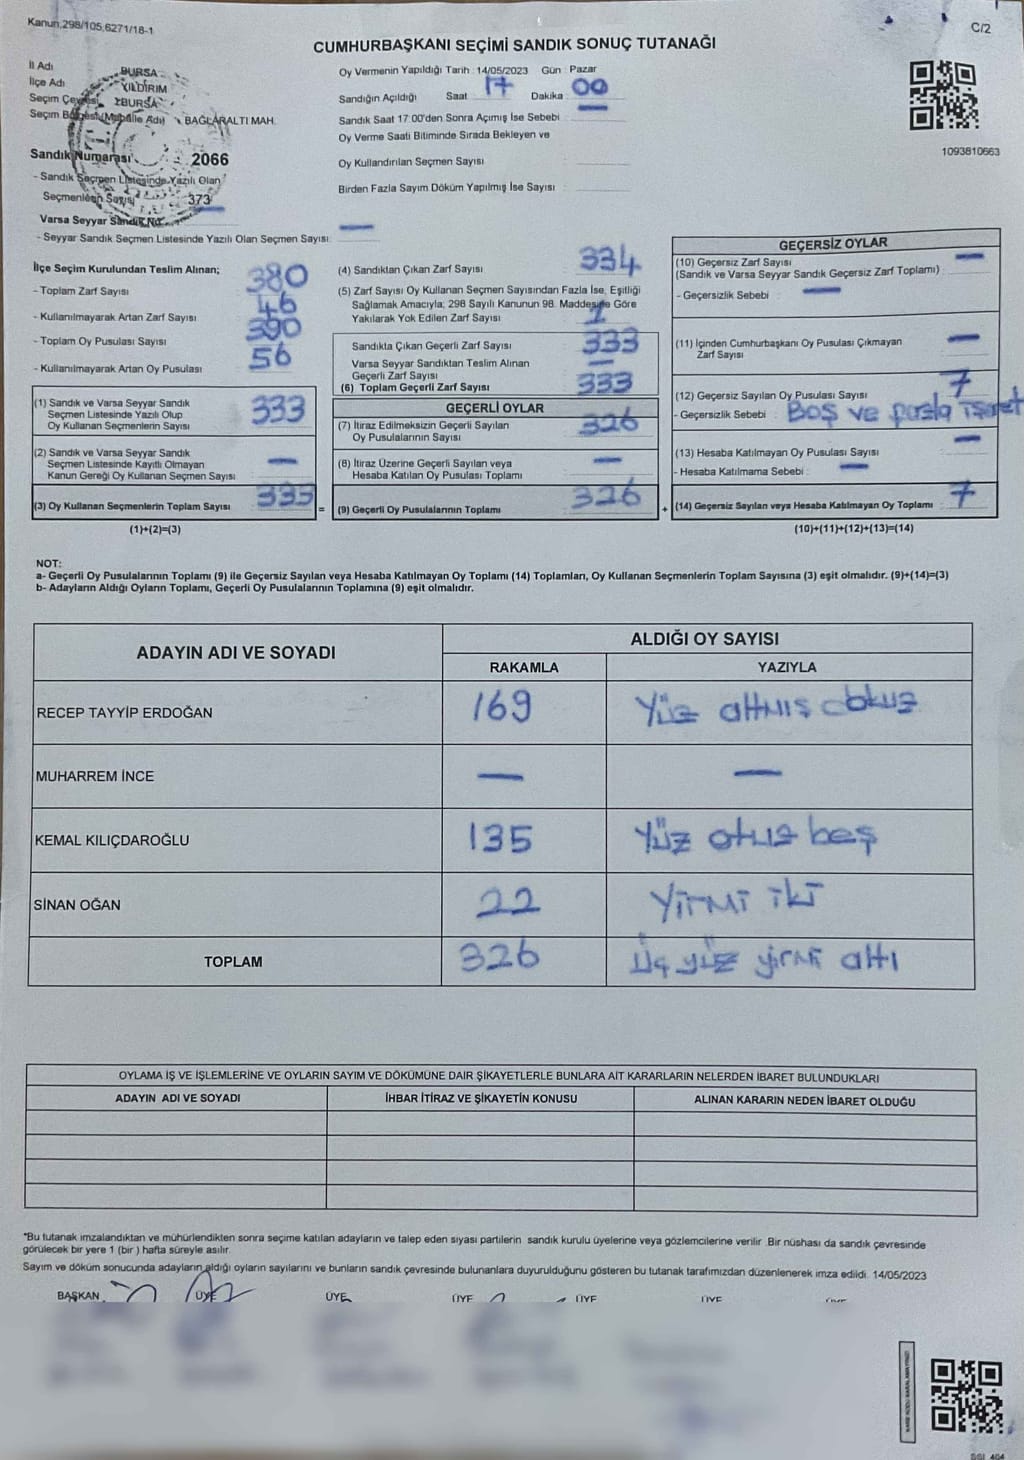 Kanun;298/105,6271/18-1
C/2
CUMHURBAŞKANI SEÇİMİ SANDIK SONUÇ TUTANAĞI
İl Adı BURSA
İlçe Adı YILDIRIM
Seçim Çevresi BURSA
Seçim Bölgesi (Mahalle Adı) BAĞLARALTI MAH.
Sandık Numarası : 2066
- Sandık Seçmen Listesinde Yazılı Olan
Seçmenlerin Sayısı 373
Varsa Seyyar Sandık No —
- Seyyar Sandık Seçmen Listesinde Yazılı Olan Seçmen Sayısı: —
Oy Vermenin Yapıldığı Tarih : 14/05/2023 Gün : Pazar
Sandığın Açıldığı Saat 17 Dakika 00
Sandık Saat 17:00'den Sonra Açımış İse Sebebi : —
Oy Verme Saati Bitiminde Sırada Bekleyen ve
Oy Kullandırılan Seçmen Sayısı :
Birden Fazla Sayım Döküm Yapılmış İse Sayısı :
1093810663
İlçe Seçim Kurulundan Teslim Alınan;
- Toplam Zarf Sayısı 380
- Kullanılmayarak Artan Zarf Sayısı 46
- Toplam Oy Pusulası Sayısı 390
- Kullanılmayarak Artan Oy Pusulası 56
(1) Sandık ve Varsa Seyyar Sandık
Seçmen Listesinde Yazılı Olup
Oy Kullanan Seçmenlerin Sayısı 333
(2) Sandık ve Varsa Seyyar Sandık
Seçmen Listesinde Kayıtlı Olmayan
Kanun Gereği Oy Kullanan Seçmen Sayısı : —
(3) Oy Kullanan Seçmenlerin Toplam Sayısı 333
(1)+(2)=(3)
(4) Sandıktan Çıkan Zarf Sayısı 334
(5) Zarf Sayısı Oy Kullanan Seçmen Sayısından Fazla İse, Eşitliği
Sağlamak Amacıyla; 298 Sayılı Kanunun 98. Maddesine Göre
Yakılarak Yok Edilen Zarf Sayısı 1
Sandıkta Çıkan Geçerli Zarf Sayısı 333
Varsa Seyyar Sandıktan Teslim Alınan
Geçerli Zarf Sayısı —
(6) Toplam Geçerli Zarf Sayısı 333
GEÇERLİ OYLAR
(7) İtiraz Edilmeksizin Geçerli Sayılan
Oy Pusulalarının Sayısı 326
(8) İtiraz Üzerine Geçerli Sayılan veya
Hesaba Katılan Oy Pusulası Toplamı —
= (9) Geçerli Oy Pusulalarının Toplamı 326
GEÇERSİZ OYLAR
(10) Geçersiz Zarf Sayısı —
(Sandık ve Varsa Seyyar Sandık Geçersiz Zarf Toplamı) :
- Geçersizlik Sebebi : —
(11) İçinden Cumhurbaşkanı Oy Pusulası Çıkmayan
Zarf Sayısı —
(12) Geçersiz Sayılan Oy Pusulası Sayısı 7
- Geçersizlik Sebebi : Boş ve fazla işaret
(13) Hesaba Katılmayan Oy Pusulası Sayısı —
- Hesaba Katılmama Sebebi : —
+ (14) Geçersiz Sayılan veya Hesaba Katılmayan Oy Toplamı 7
(10)+(11)+(12)+(13)=(14)
NOT:
a- Geçerli Oy Pusulalarının Toplamı (9) ile Geçersiz Sayılan veya Hesaba Katılmayan Oy Toplamı (14) Toplamları, Oy Kullanan Seçmenlerin Toplam Sayısına (3) eşit olmalıdır. (9)+(14)=(3)
b- Adayların Aldığı Oyların Toplamı, Geçerli Oy Pusulalarının Toplamına (9) eşit olmalıdır.
ADAYIN ADI VE SOYADI ALDIĞI OY SAYISI
RAKAMLA YAZIYLA
RECEP TAYYİP ERDOĞAN 169 Yüz altmış dokuz
MUHARREM İNCE — —
KEMAL KILIÇDAROĞLU 135 Yüz otuz beş
SİNAN OĞAN 22 Yirmi iki
TOPLAM 326 Üç yüz yirmi altı
OYLAMA İŞ VE İŞLEMLERİNE VE OYLARIN SAYIM VE DÖKÜMÜNE DAİR ŞİKAYETLERLE BUNLARA AİT KARARLARIN NELERDEN İBARET BULUNDUKLARI
ADAYIN ADI VE SOYADI İHBAR İTİRAZ VE ŞİKAYETİN KONUSU ALINAN KARARIN NEDEN İBARET OLDUĞU
*Bu tutanak imzalandıktan ve mühürlendikten sonra seçime katılan adayların ve talep eden siyasi partilerin sandık kurulu üyelerine veya gözlemcilerine verilir. Bir nüshası da sandık çevresinde
görülecek bir yere 1 (bir ) hafta süreyle asılır.
Sayım ve döküm sonucunda adayların aldığı oyların sayılarını ve bunların sandık çevresinde bulunanlara duyurulduğunu gösteren bu tutanak tarafımızdan düzenlenerek imza edildi. 14/05/2023
BAŞKAN ÜYE ÜYE ÜYE ÜYE ÜYE